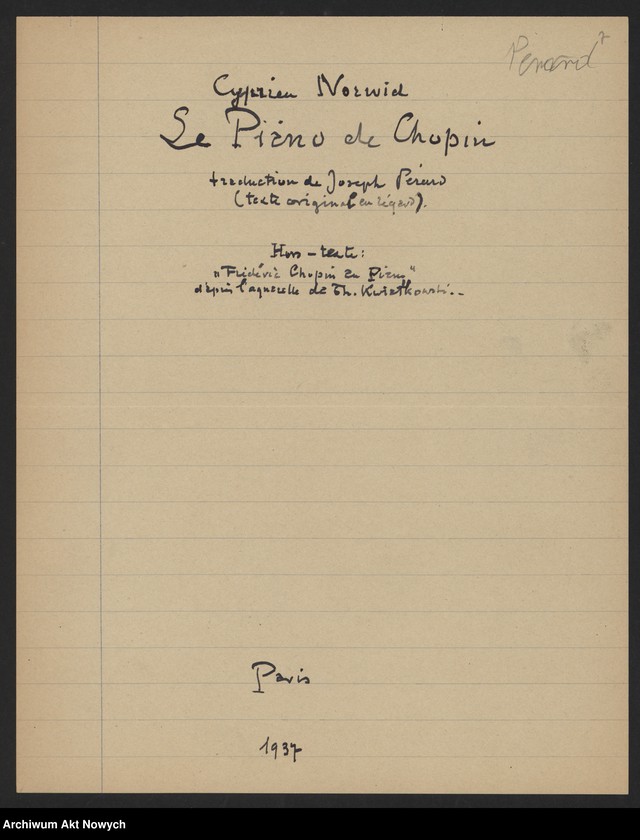 Pérard
Cyprien Norwid
Le Piano de Chopin
traduction de Joseph Pérard
(texte original en régard).
Hors-texte:
"Frédéric Chopin au Piano"
d'après l'aquarelle de Th. Kwiatkowski.-
Paris
1937
Archiwum Akt Nowych